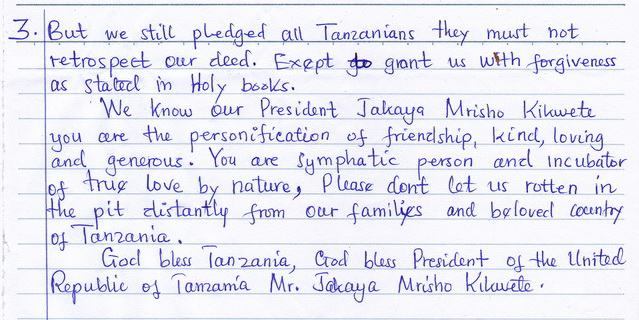 3. But we still pledged all Tanzanians they must not
retrospect our deed. Exept to grant us with forgiveness
as stated in Holy books.
We know our President Jakaya Mrisho Kikwete
you are the personification of friendship, kind, loving
and generous. You are symphatic person and incubator
of true love by nature, Please dont let us rotten in
the pit distantly from our families and beloved country
of Tanzania.
God bless Tanzania, God bless President of the United
Republic of Tanzania Mr. Jakaya Mrisho Kikwete.